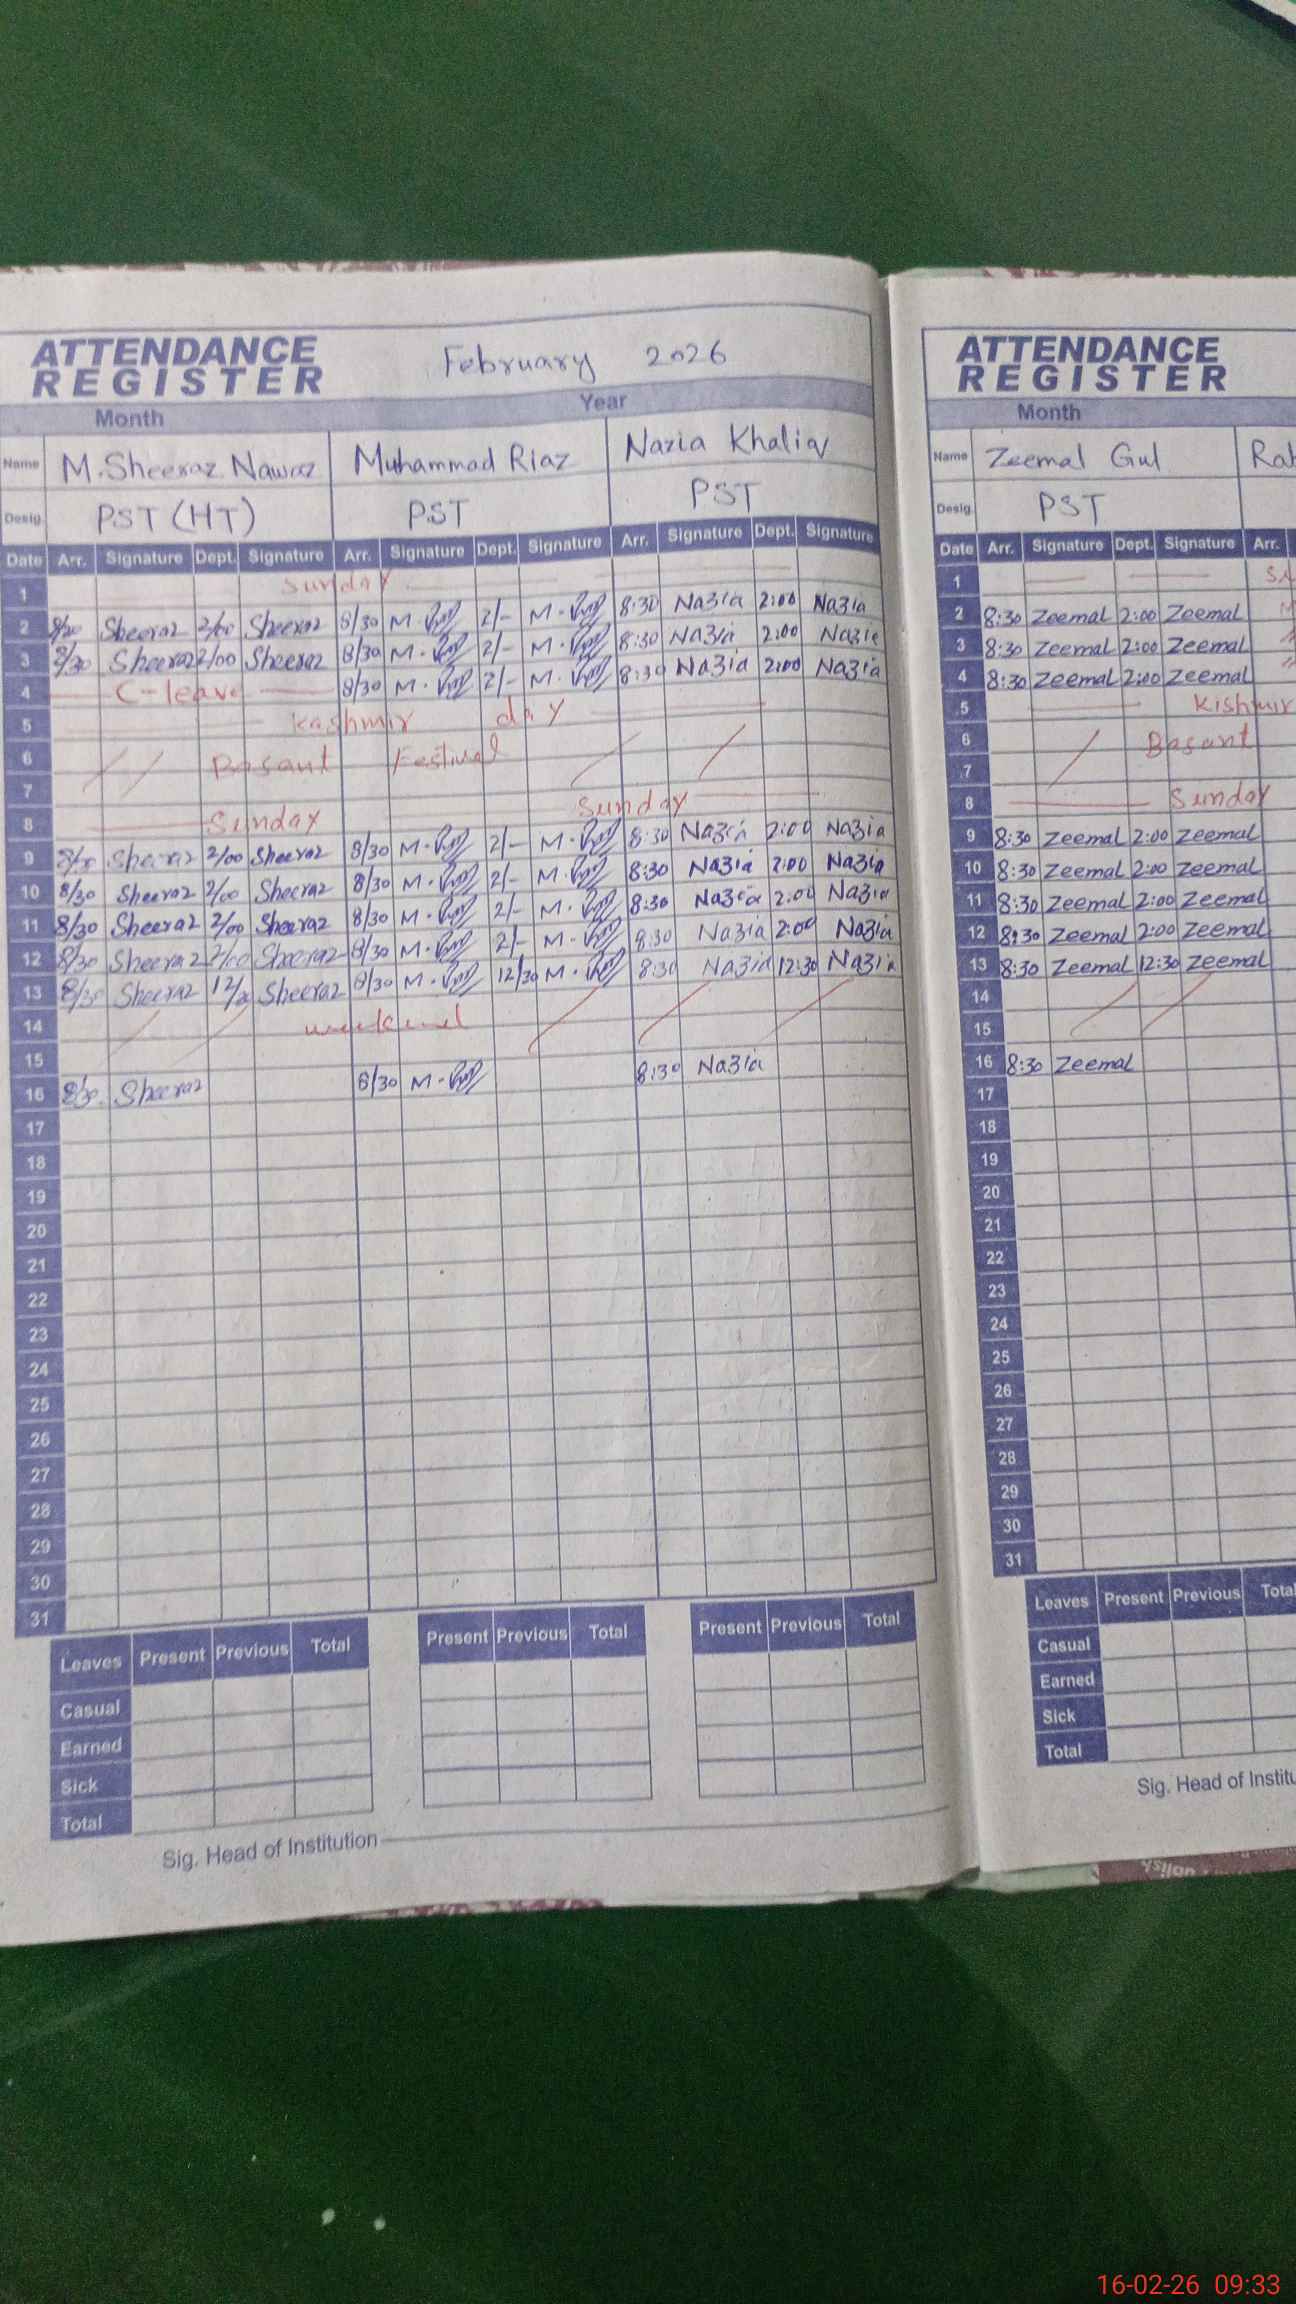 ATTENDANCE
REGISTER
February 2026
Month Year
Name M.Sheeraz Nawaz Muhammad Riaz Nazia Khaliq
Desig. PST (HT) PST PST
Date Arr. Signature Dept. Signature Arr. Signature Dept. Signature Arr. Signature Dept. Signature
1 Sunday
2 8/30 Sheeraz 2/00 Sheeraz 8/30 M. 2/- M. 8:30 Nazia 2:00 Nazia
3 8/30 Sheeraz 2/00 Sheeraz 8/30 M. 2/- M. 8:30 Nazia 2:00 Nazia
4 C-leave 8/30 M. 2/- M. 8:30 Nazia 2:00 Nazia
5 Kashmir day
6 Basant Festival
7
8 Sunday Sunday
9 8/30 Sheeraz 2/00 Sheeraz 8/30 M. 2/- M. 8:30 Nazia 2:00 Nazia
10 8/30 Sheeraz 2/00 Sheeraz 8/30 M. 2/- M. 8:30 Nazia 2:00 Nazia
11 8/30 Sheeraz 2/00 Sheeraz 8/30 M. 2/- M. 8:30 Nazia 2:00 Nazia
12 8/30 Sheeraz 2/00 Sheeraz 8/30 M. 2/- M. 8:30 Nazia 2:00 Nazia
13 8/30 Sheeraz Sheeraz 8/30 M. 12/30 M. 8:30 Nazia 12:30 Nazia
14 weekend
15
16 8/30 Sheeraz 8/30 M. 8:30 Nazia
17
18
19
20
21
22
23
24
25
26
27
28
29
30
31
Leaves Present Previous Total Present Previous Total Present Previous Total
Casual
Earned
Sick
Total
Sig. Head of Institution
ATTENDANCE
REGISTER
Month
Name Zeemal Gul
Desig. PST
Date Arr. Signature Dept. Signature Arr.
1
2 8:30 Zeemal 2:00 Zeemal
3 8:30 Zeemal 2:00 Zeemal
4 8:30 Zeemal 2:00 Zeemal
5 Kishmir
6 Basant
7
8 Sunday
9 8:30 Zeemal 2:00 Zeemal
10 8:30 Zeemal 2:00 Zeemal
11 8:30 Zeemal 2:00 Zeemal
12 8:30 Zeemal 2:00 Zeemal
13 8:30 Zeemal 12:30 Zeemal
14
15
16 8:30 Zeemal
17
18
19
20
21
22
23
24
25
26
27
28
29
30
31
Leaves Present Previous Total
Casual
Earned
Sick
Total
Sig. Head of
16-02-26 09:33